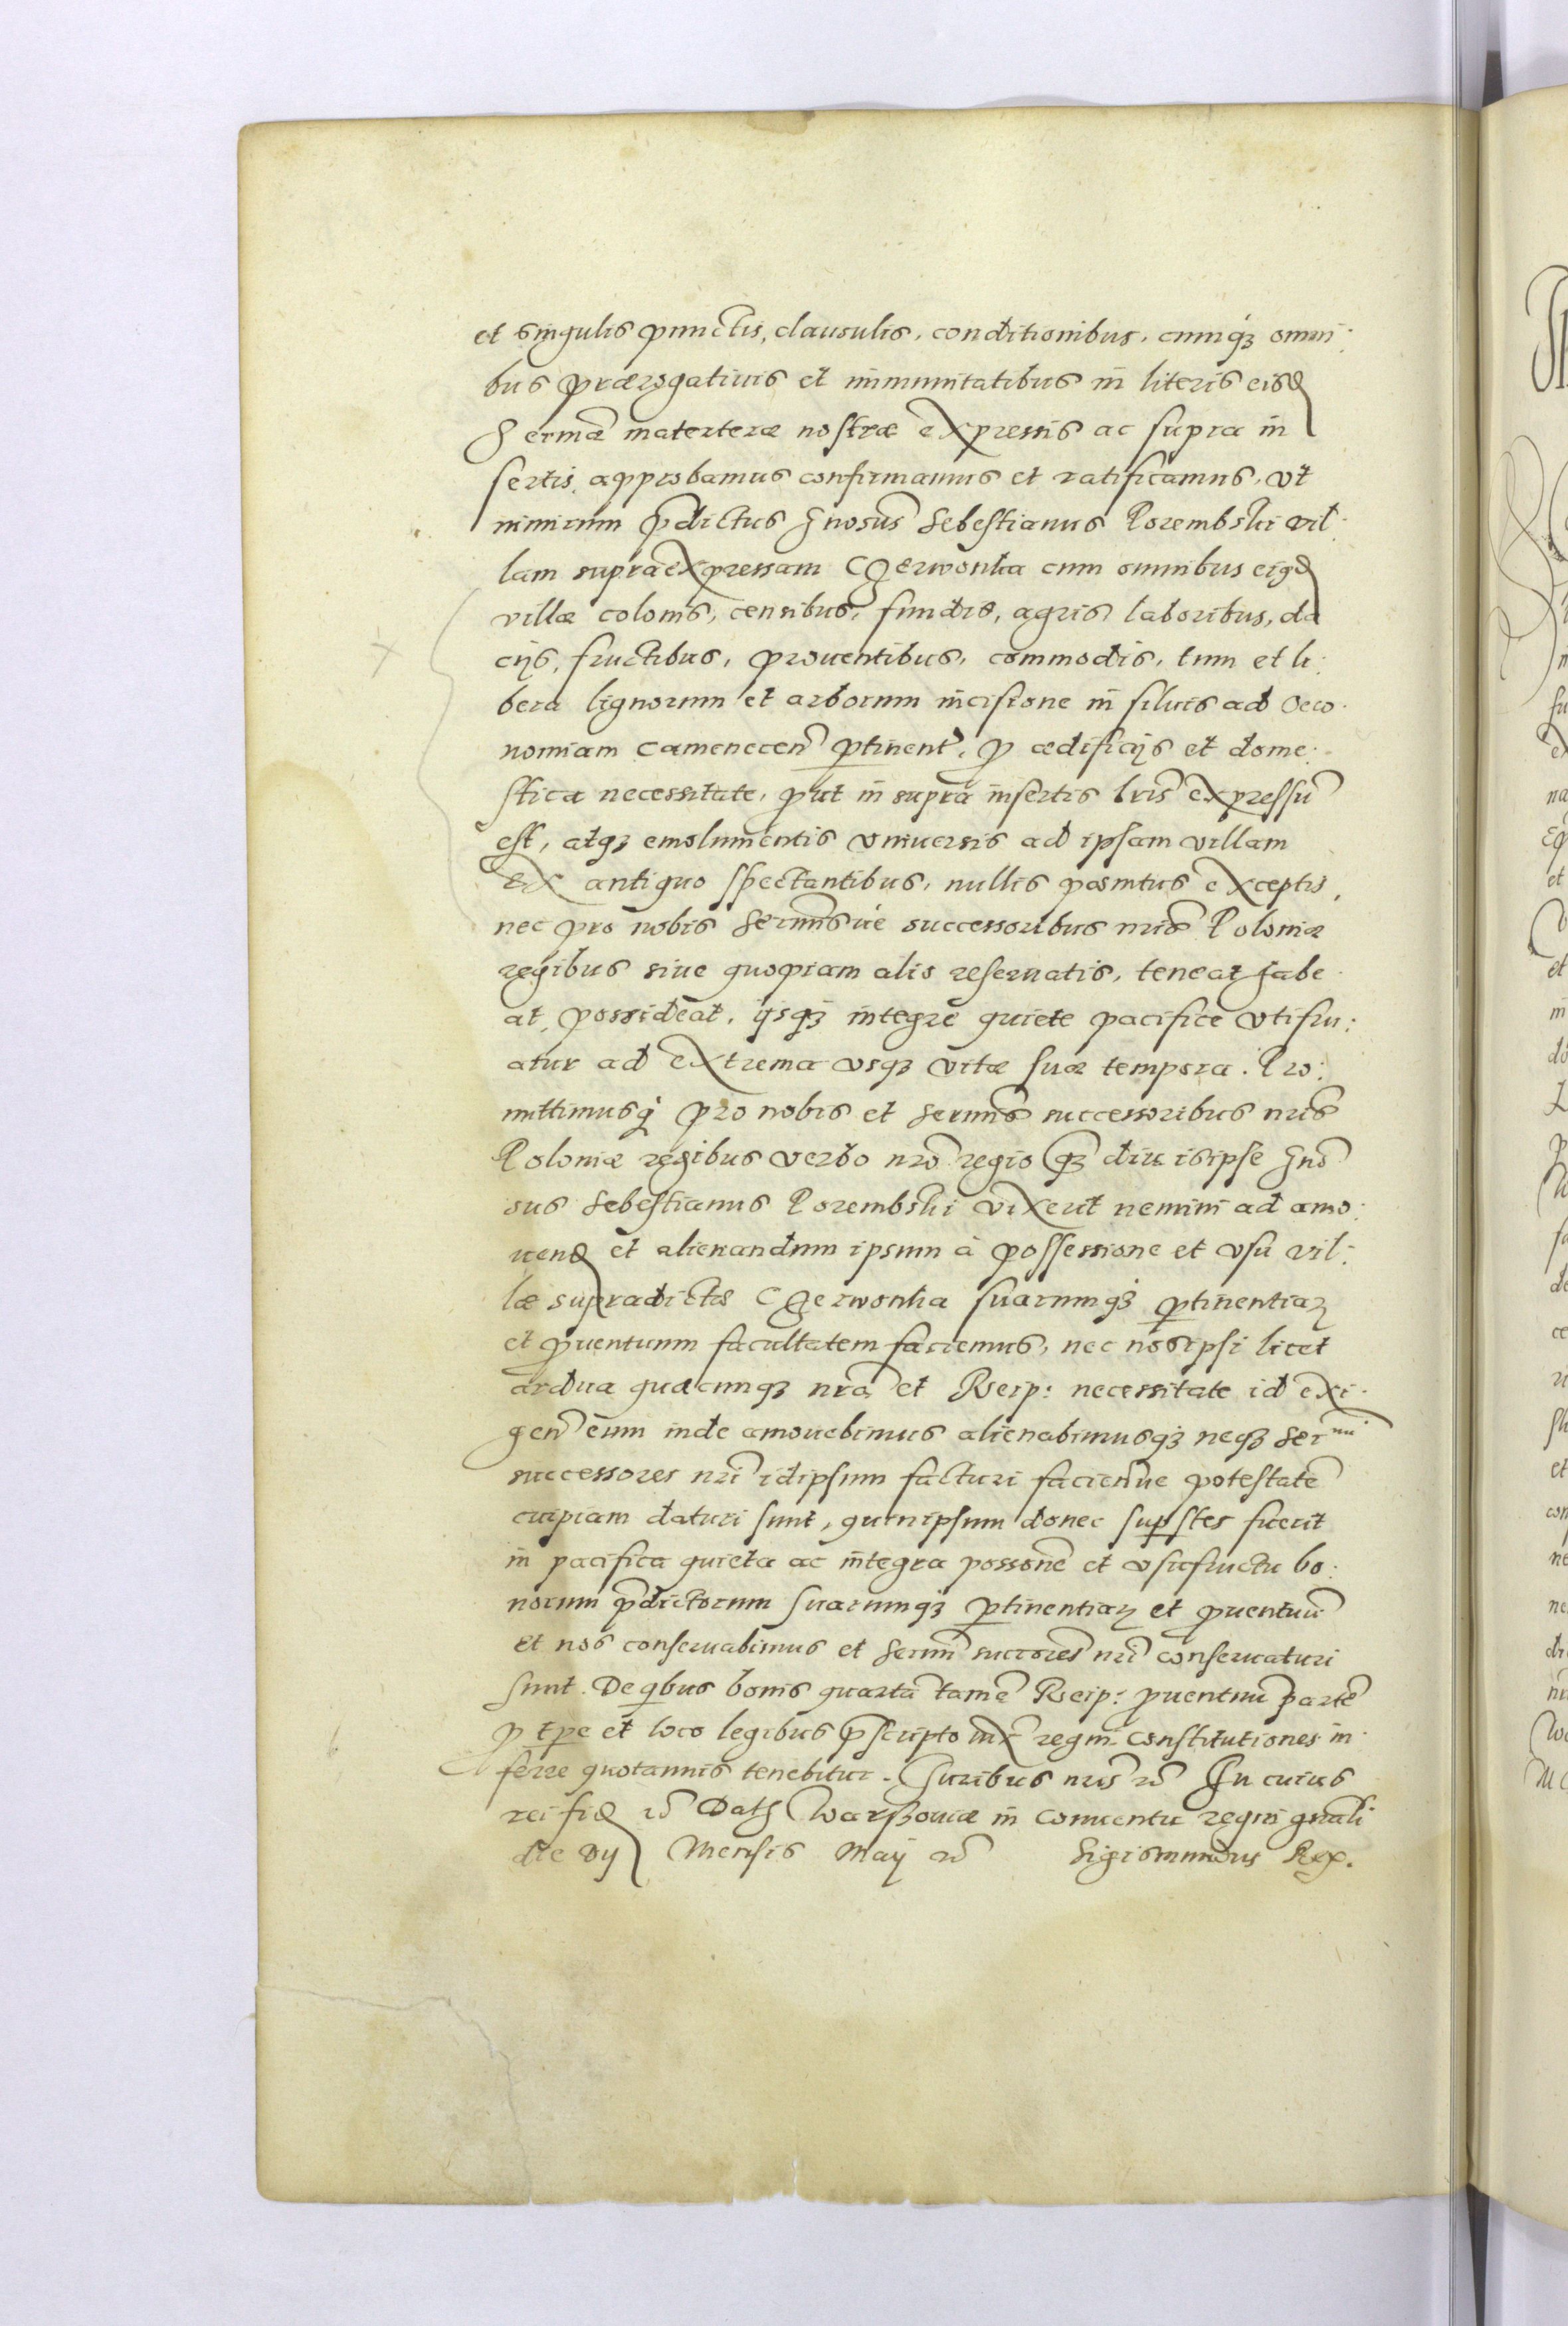 et singulis punctis, clausulis, conditionibus, cumq3 omni:
bus prærogativis et immunitatibus in literis eisd
Sermæ materteræ nostræ expressis ac supra in
sertis approbamus confirmamus et ratificamus, vt
nimirum p̄dictus Gnosus Sebestianus Porembski vil:
lam supra expressam Czerwonka cum omnibus eisd
villæ colonis, censibus, fundis, agris, laboribus, da
cijs, fructibus, proventibus, commodis, tum et li:
bera lignorum et arborum incisione in siluis ad Oeco:
nomiam Camenecen̄ ptinent̄, p ædificijs et dome:
stica necessitate, put in supra insertis lris̄ expressū
est, atq3 emolumentis vniuersis ad ipsam villam
ex antiquo spectantibus, nullis pœnitus exceptis,
nec pro nobis Sermīsue successoribus nris̄ Poloniæ
regibus siue quopiam alio reseruatis, teneat habe
at, possideat, ijsq3 integre quiete pacifice vtifru:
atur ad extrema vsq3 vitæ suæ tempora. Pro:
mittimusq3 pro nobis et Sermīs successoribus nris̄
Poloniæ regibus verbo nro̅ regio q̄ diu is ipse Gno̅
sus Sebestianus Porembski vixerit nemini ad amo:
uend et alienandum ipsum à possessione et vsu vil:
læ supradictæ Czerwonka suarumq3 ptinentiar
et puentuum facultatem faciemus, nec nos ipsi licet
ardua quacunq3 nra̅ et Reip: necessitate id exi:
gen̄ eum inde amouebimus alienabimusq3 neq3 Ser^mi
successores nri̅ idipsum facturi faciendive potestatē
cuipiam daturi sunt, quin ipsum donec supstes fuerit
in pacifica quieta ac integra possone̅ et vsufructu bo:
norum p̄dictorum suarumq3 ptinentiar et puentuū
et nos conseruabimus et Sermī succores̄ nri̅ conseruaturi
sunt. De qbus bonis quartā tamē Reip: puentuū partē
p tpe et loco legibus p̄scripto iux̄ regni constitutiones in:
ferre quotannis tenebitur. Juribus nris̄ &c̅ In cuius
rei fid &c̅ Dat Warssouiæ in conuentu regni gnali
die vij Mensis Maij &c̅ Sigismundus Rex.